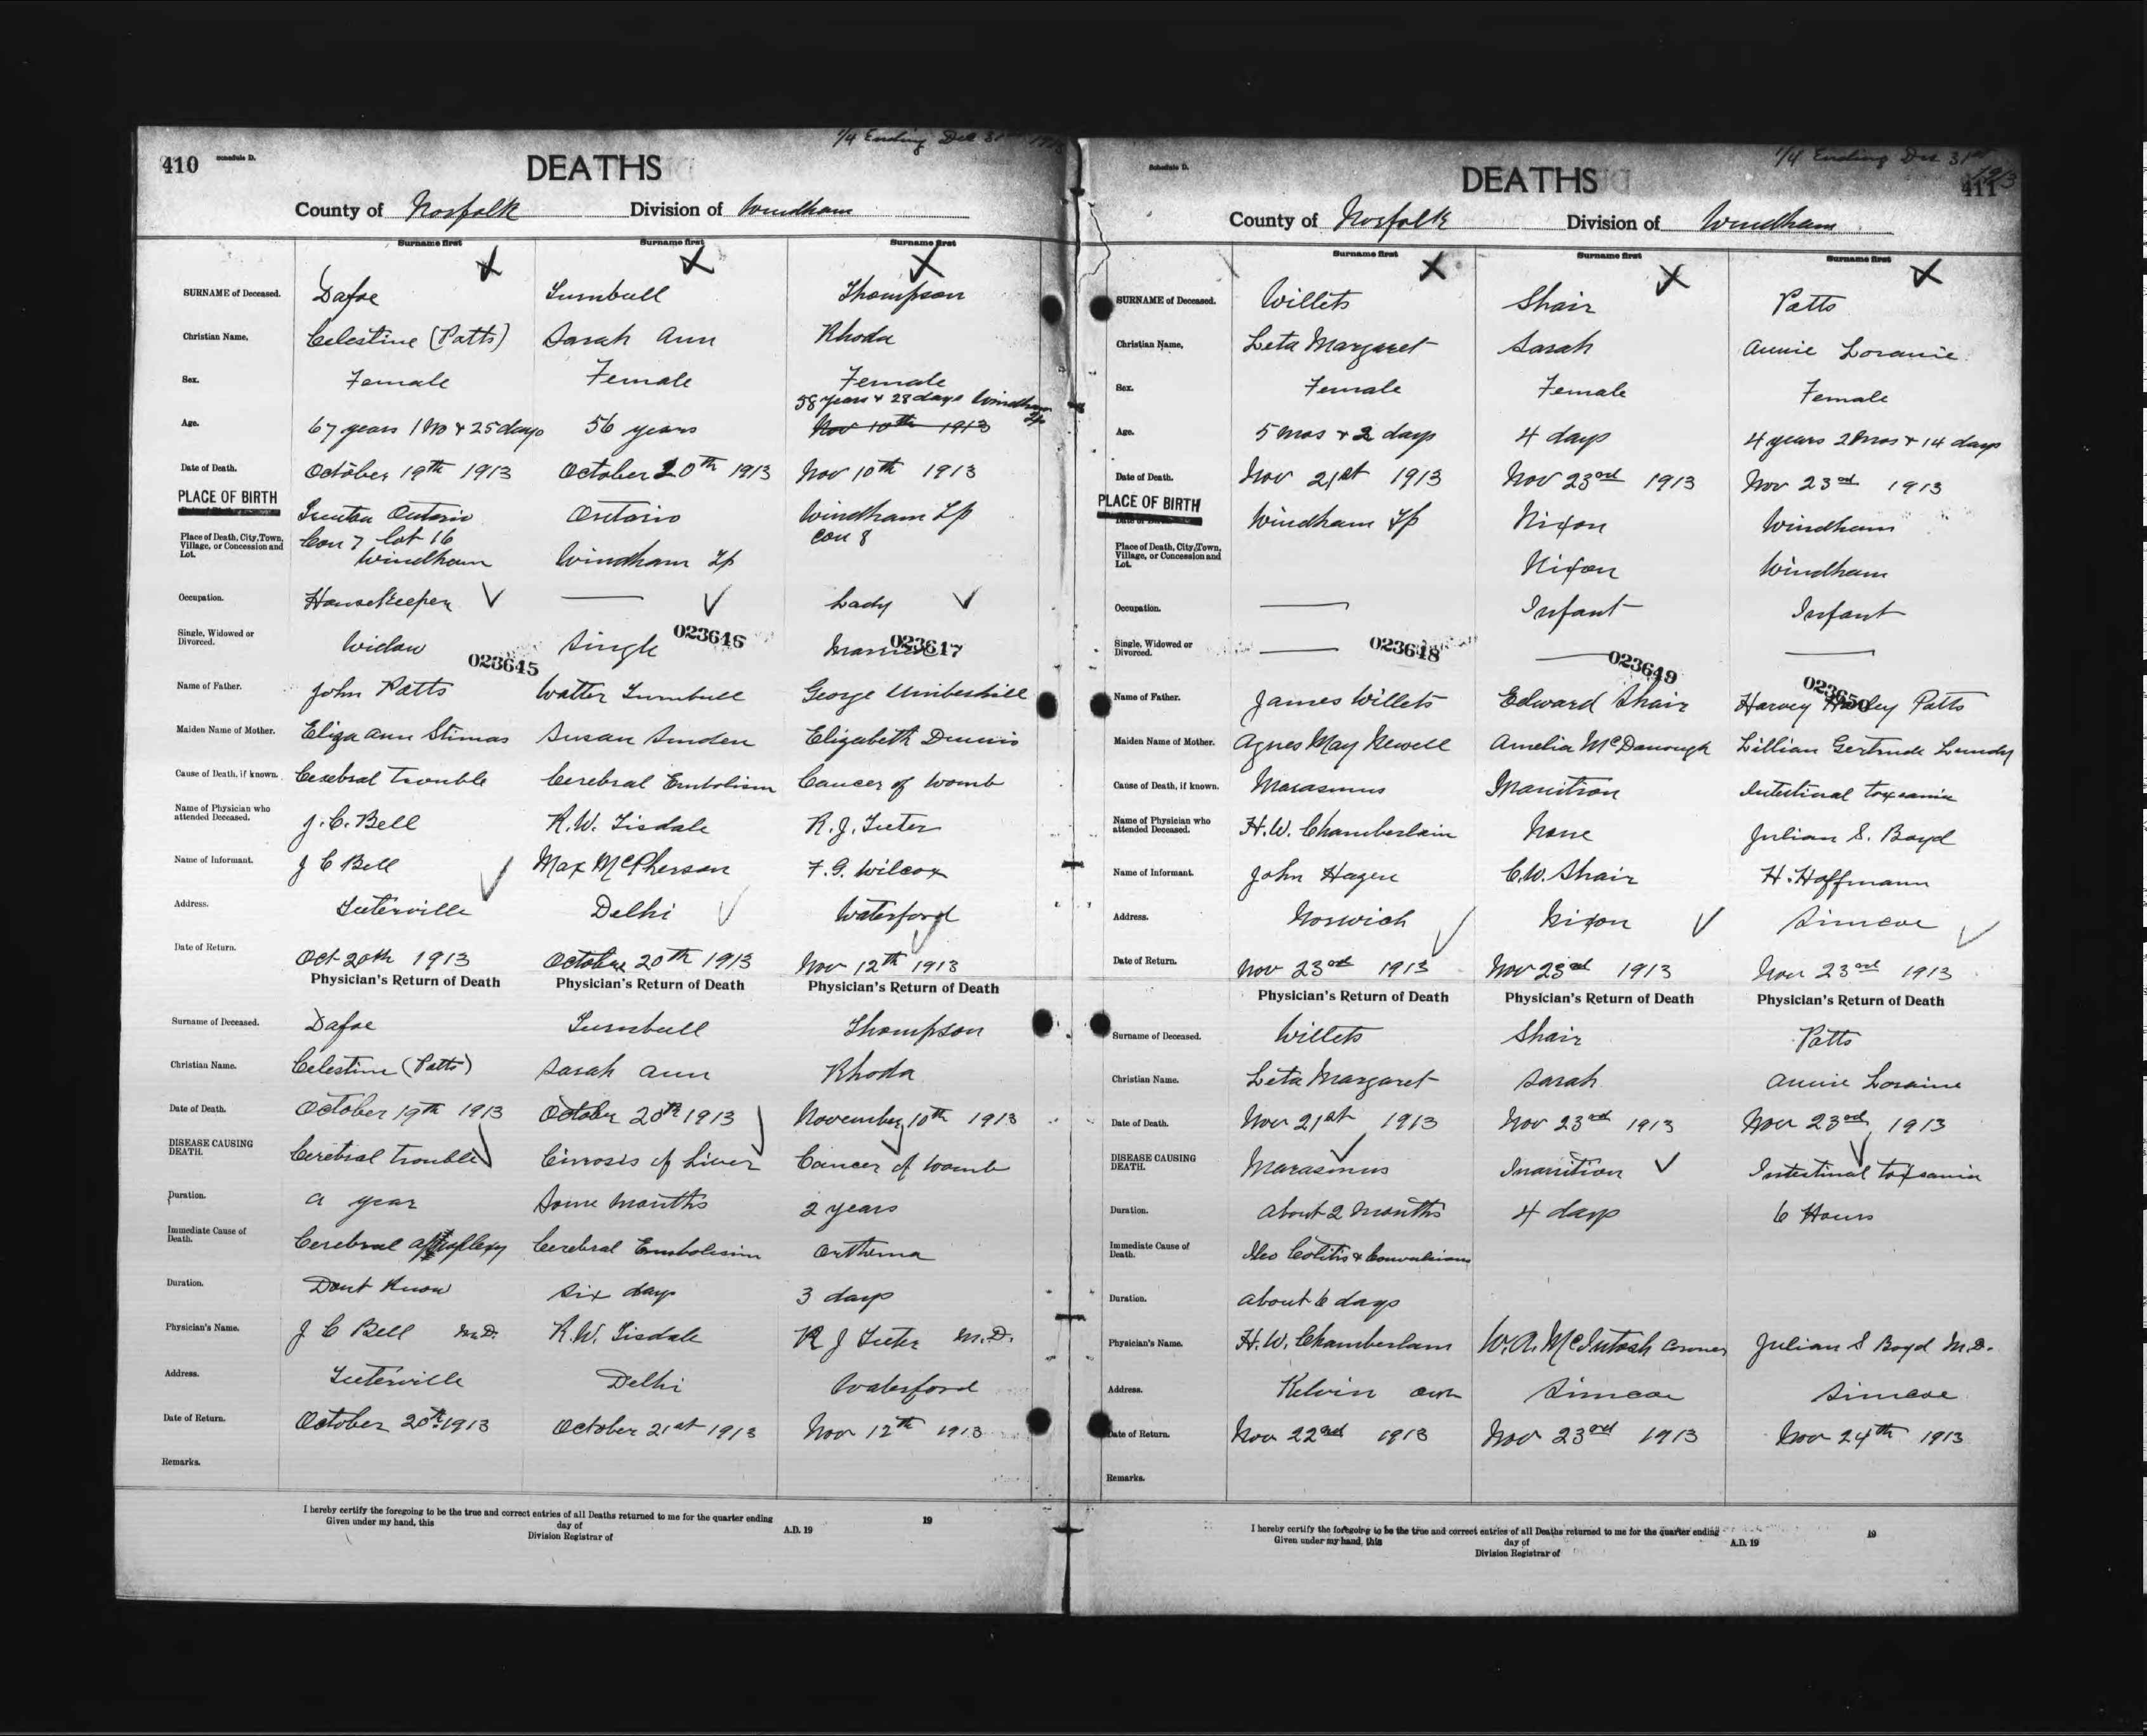 410 Schedule D.
1/4 Ending Dec 31
DEATHS
County of Norfolk Division of Windham
Surname first Surname first Surname first
SURNAME of Deceased. Dafoe Turnbull Thompson
Christian Name. Celestine (Potts) Sarah Ann Rhoda
Sex. Female Female Female
58 years + 28 days Windham Tp
Age. 67 years 1 Mo + 25 days 56 years Nov 10th 1913
Date of Death. October 19th 1913 October 20th 1913 Nov 10th 1913
PLACE OF BIRTH Trenton Ontario Ontario Windham Tp
Place of Death, City, Town, Village, or Concession and Lot. Con 7 Lot 16 Windham Windham Tp Con 8
Occupation. Housekeeper — Lady
Single, Widowed or Divorced. Widow Single Married
023645 023646 023617
Name of Father. John Potts Walter Turnbull George Umberhill
Maiden Name of Mother. Eliza Ann Susan Sinden Elizabeth Dennis
Cause of Death, if known. Cerebral trouble Cerebral Embolism Cancer of Womb
Name of Physician who attended Deceased. J. C. Bell R.W. Tisdale R. J. Teeter
Name of Informant. J C Bell Max McPherson F. G. Wilcox
Address. Teeterville Delhi Waterford
Date of Return. Oct 20th 1913 October 20th 1913 Nov 12th 1913
Physician's Return of Death Physician's Return of Death Physician's Return of Death
Surname of Deceased. Dafoe Turnbull Thompson
Christian Name. Celestine (Potts) Sarah Ann Rhoda
Date of Death. October 19th 1913 October 20th 1913 November 10th 1913
DISEASE CAUSING DEATH. Cerebral trouble Cirrosis of Liver Cancer of Womb
Duration. a year Some Months 2 years
Immediate Cause of Death. Cerebral apoplexy Cerebral Embolism
Duration. Dont Know Six days 3 days
Physician's Name. J C Bell M.D. R.W. Tisdale R J Teeter M.D.
Address. Teeterville Delhi Waterford
Date of Return. October 20th 1913 October 21st 1913 Nov 12th 1913
Remarks.
I hereby certify the foregoing to be the true and correct entries of all Deaths returned to me for the quarter ending 19
Given under my hand, this day of A.D. 19
Division Registrar of
Schedule D.
1/4 Ending Dec 31st 1913
411
DEATHS
County of Norfolk Division of Windham
Surname first Surname first Surname first
SURNAME of Deceased. Willets Shair Potts
Christian Name. Leta Margaret Sarah Annie Loranie
Sex. Female Female Female
Age. 5 mos + 2 days 4 days 4 years 2 mos + 14 days
Date of Death. Nov 21st 1913 Nov 23rd 1913 Nov 23rd 1913
PLACE OF BIRTH Windham Tp Nixon Windham
Place of Death, City, Town, Village, or Concession and Lot. Nixon Windham
Occupation. — Infant Infant
Single, Widowed or Divorced. — — —
023618 023649 023650
Name of Father. James Willets Edward Shair Harvey Potts
Maiden Name of Mother. Agnes May Newell Amelia McDonough Lillian Gertrude Lundy
Cause of Death, if known. Marasmus Inanition Intestinal toxeamia
Name of Physician who attended Deceased. H.W. Chamberlain None Julian S. Boyd
Name of Informant. John Hagen C.W. Shair H. Hoffmann
Address. Norwich Nixon Simcoe
Date of Return. Nov 23rd 1913 Nov 23rd 1913 Nov 23rd 1913
Physician's Return of Death Physician's Return of Death Physician's Return of Death
Surname of Deceased. Willets Shair Potts
Christian Name. Leta Margaret Sarah Annie Loraine
Date of Death. Nov 21st 1913 Nov 23rd 1913 Nov 23rd 1913
DISEASE CAUSING DEATH. Marasmus Inanition Intestinal toxeamia
Duration. about 2 Months 4 days 6 Hours
Immediate Cause of Death. Ileo Colitis & Convulsions
Duration. about 6 days
Physician's Name. H. W. Chamberlain W. A. McIntosh Coroner Julian S Boyd M.D.
Address. Kelvin Ont Simcoe Simcoe
Date of Return. Nov 22nd 1913 Nov 23rd 1913 Nov 24th 1913
Remarks.
I hereby certify the foregoing to be the true and correct entries of all Deaths returned to me for the quarter ending 19
Given under my hand, this day of A.D. 19
Division Registrar of